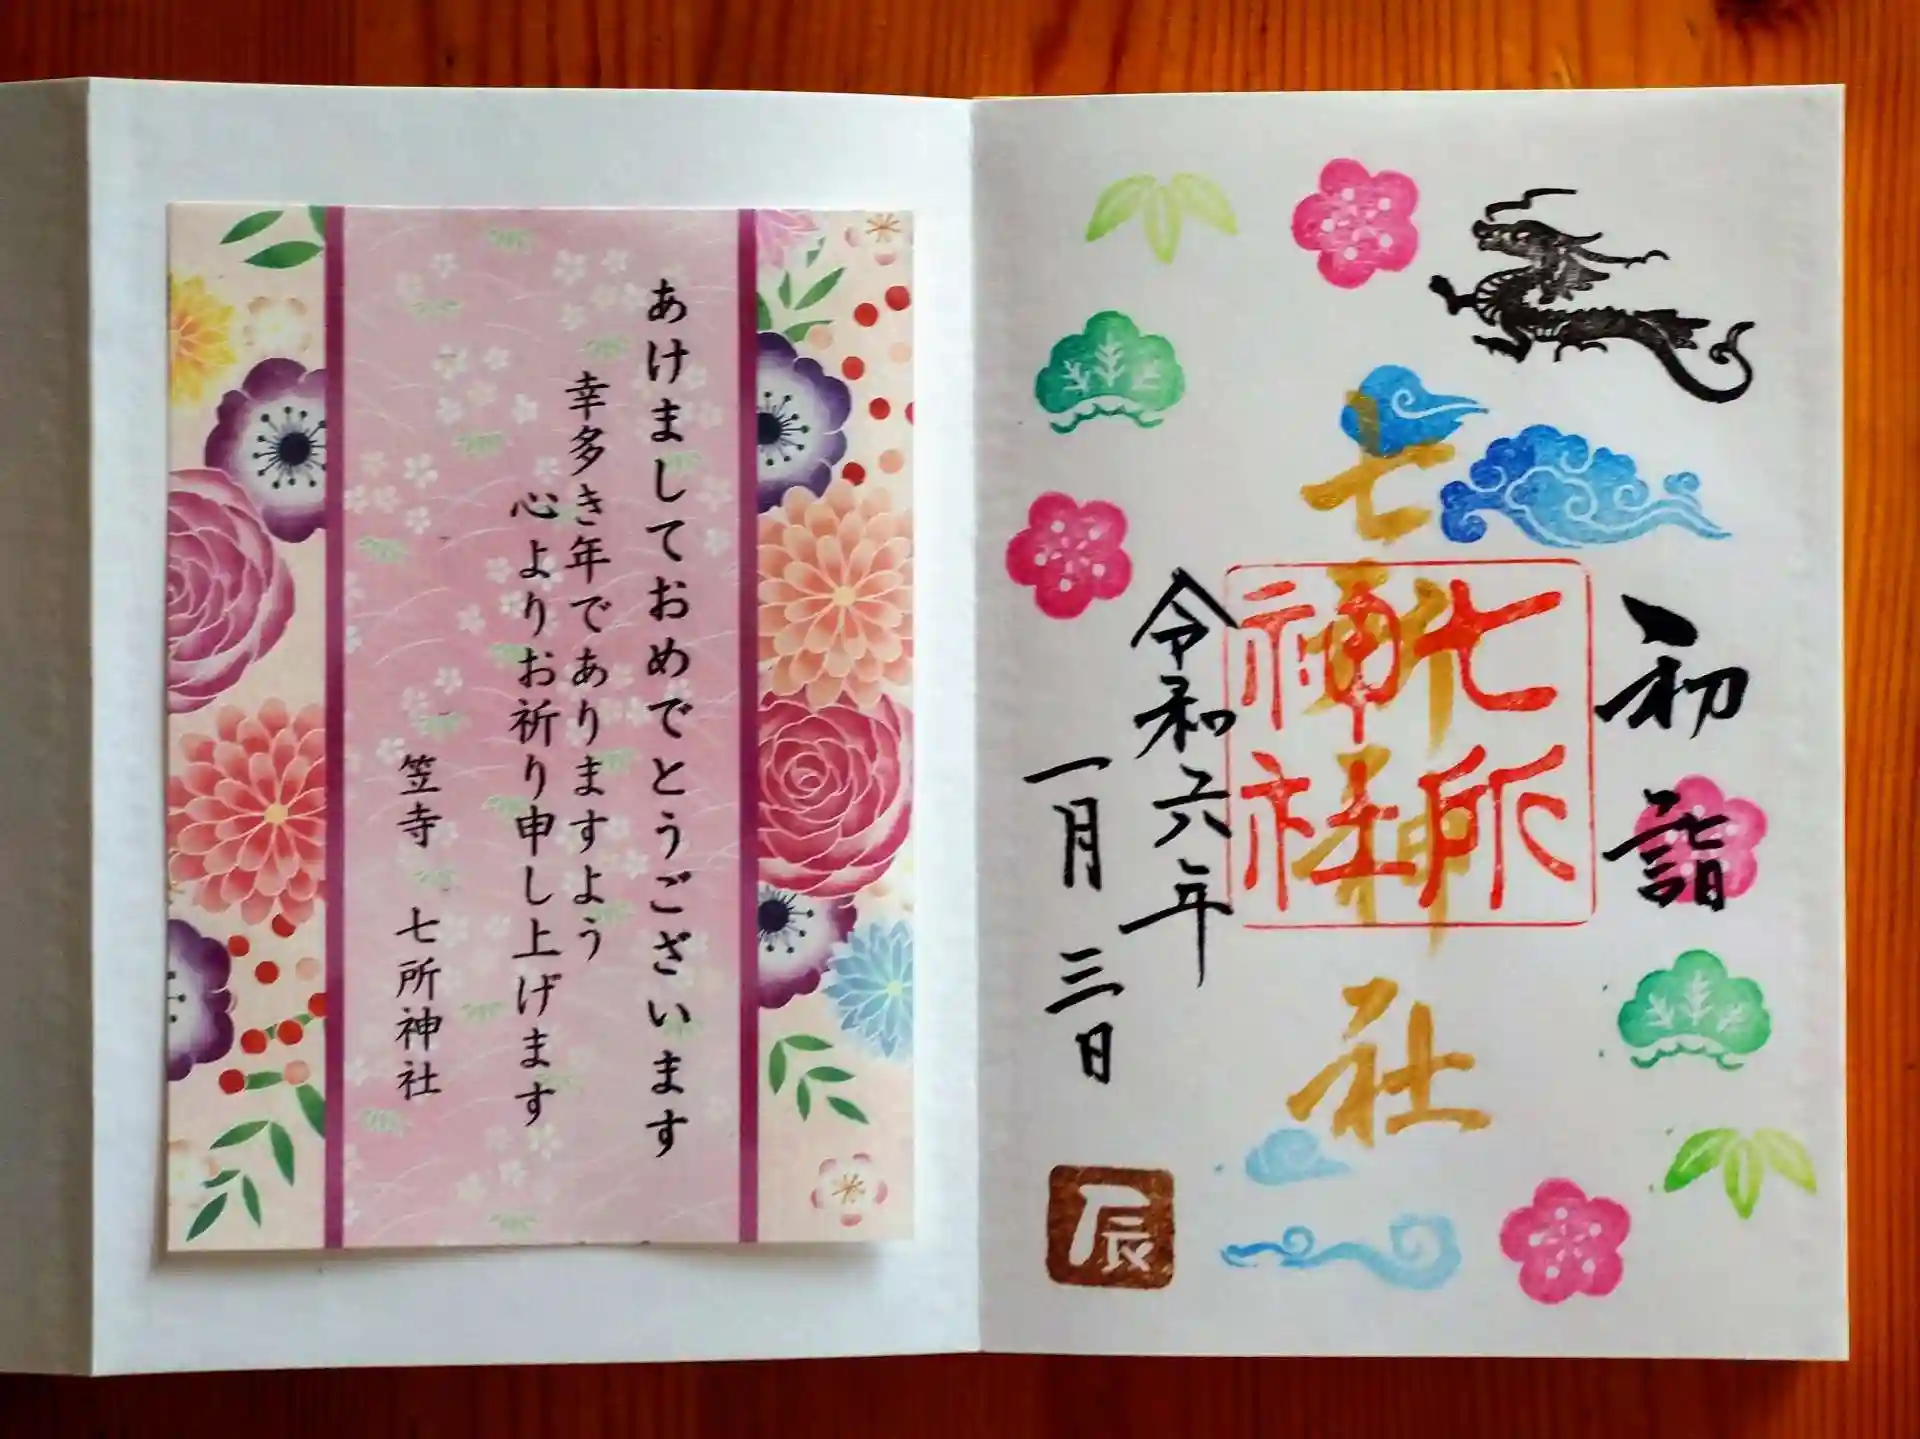 あけましておめでとうございます
幸多き年でありますよう
心よりお祈り申し上げます
笠寺 七所神社
初詣
七所神社
七所
神社
令和六年
一月三日
辰